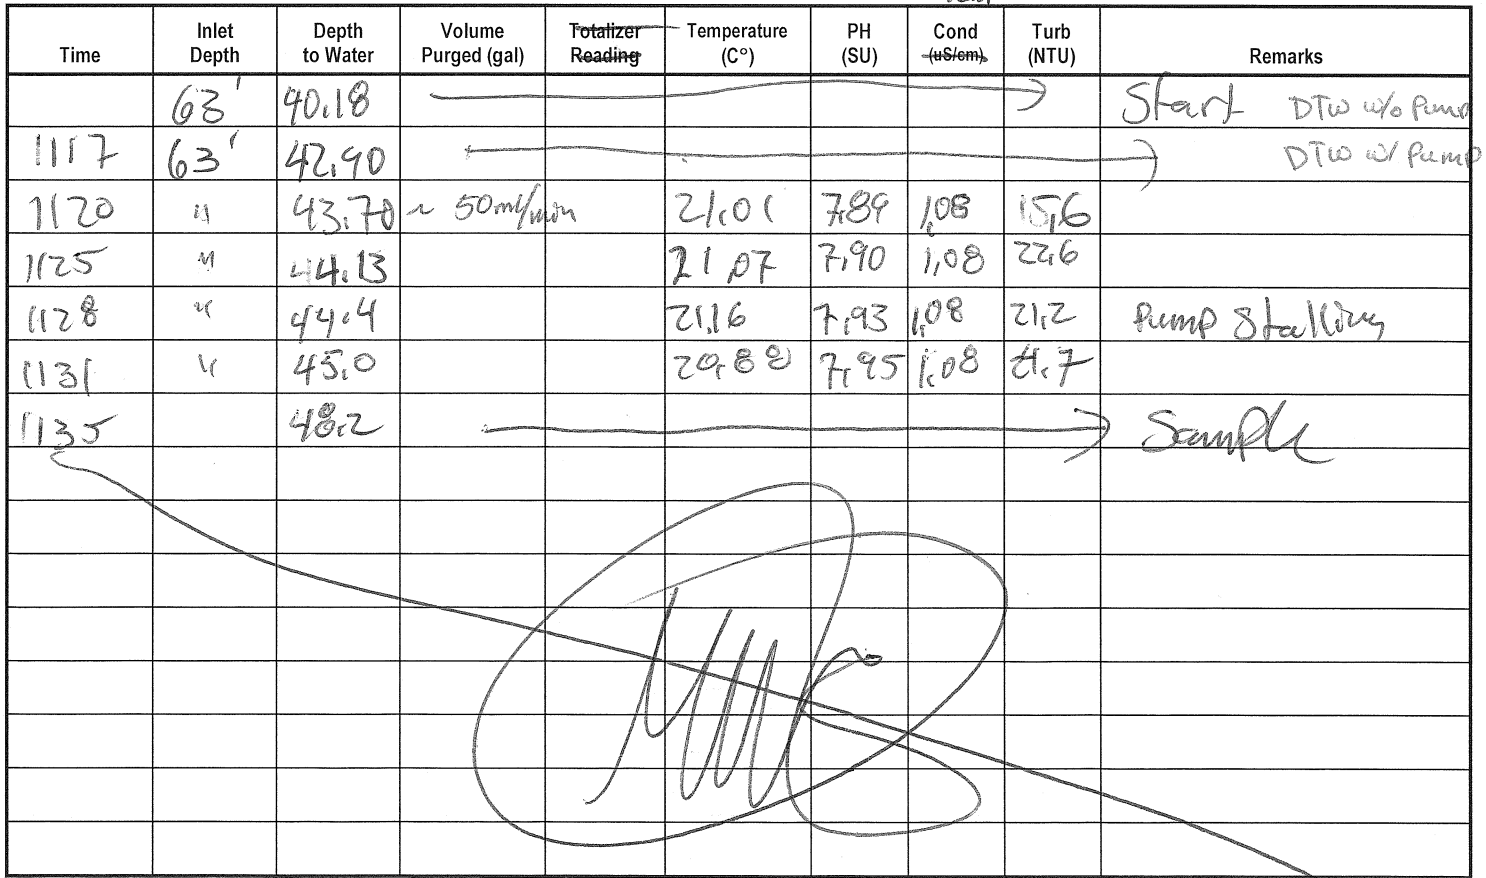 Time Inlet Depth Depth to Water Volume Purged (gal) Totalizer Reading Temperature (C°) PH (SU) Cond (uS/cm) Turb (NTU) Remarks
63' 40.18 Start DTW w/o Pump
1117 63' 42.90 DTW w/ Pump
1120 " 43.70 ~ 50ml/min 21.01 7.89 1.08 15.6
1125 " 44.13 21.07 7.90 1.08 22.6
1128 " 44.4 21.16 7.93 1.08 21.2 Pump Stalling
1131 " 45.0 7.95 1.08
1135 48.2 Sample